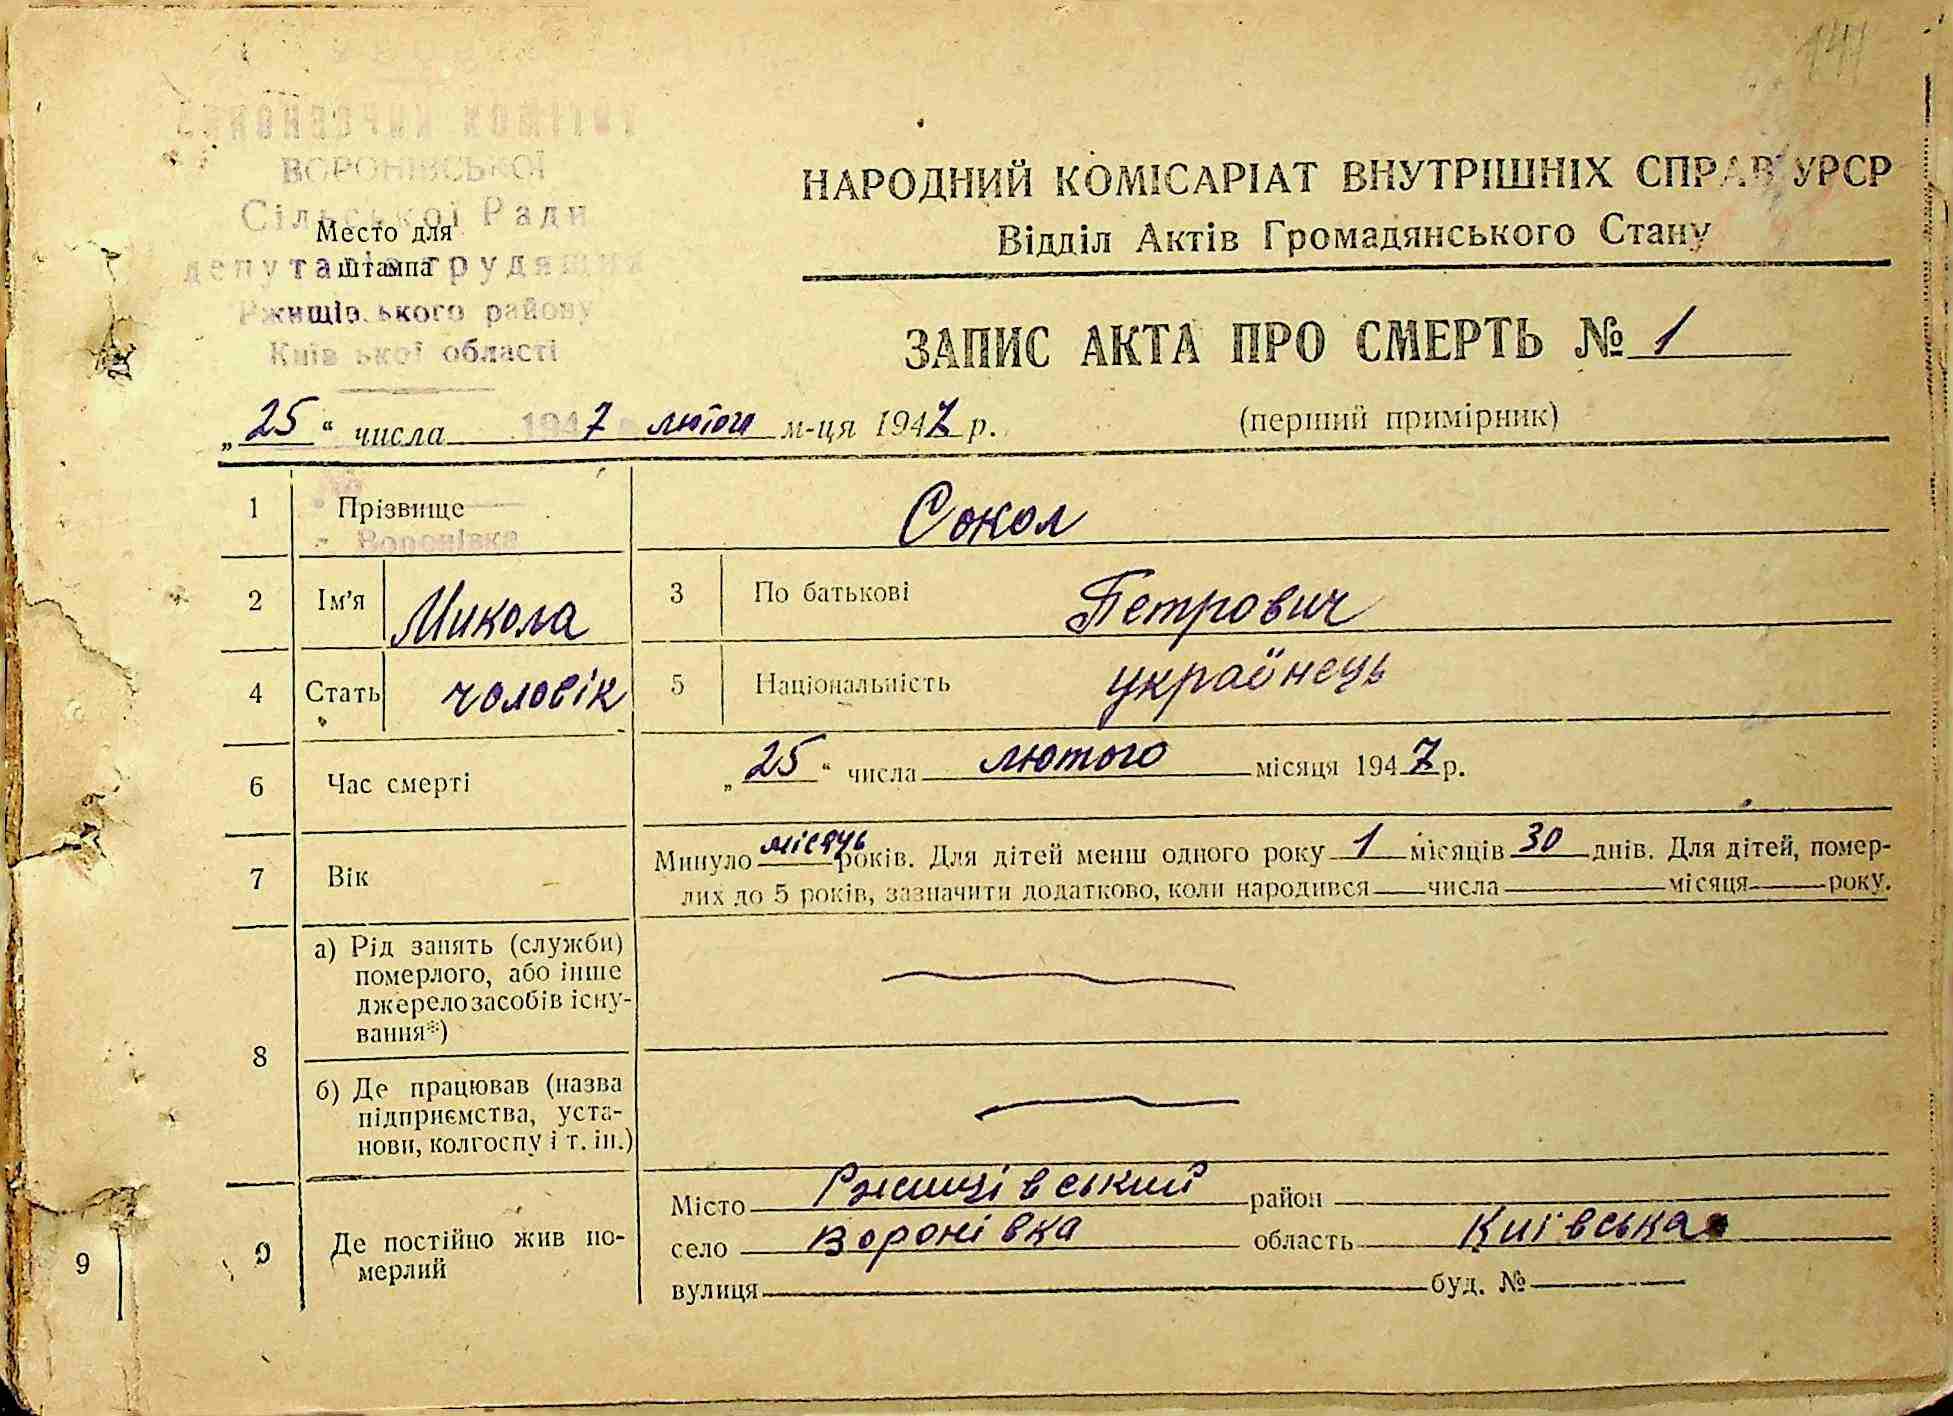 141
ВОРОНІВСЬКОЇ
Сільської Ради
депутатів трудящих
Ржищівського району
Київської області
Место для
штампа
1947
Воронівка
НАРОДНИЙ КОМІСАРІАТ ВНУТРІШНІХ СПРАВ УРСР
Відділ Актів Громадянського Стану
ЗАПИС АКТА ПРО СМЕРТЬ № 1
(перший примірник)
„25“ числа 7 лютого м-ця 1947 р.
1 Прізвище Сокол
2 Ім'я Микола 3 По батькові Петрович
4 Стать чоловік 5 Національність українець
6 Час смерті „25“ числа лютого місяця 1947 р.
7 Вік Минуло місяць років. Для дітей менш одного року 1 місяців 30 днів. Для дітей, помер-
лих до 5 років, зазначити додатково, коли народився числа місяця року.
8 а) Рід занять (служби)
померлого, або інше
джерело засобів існу-
вання*)
б) Де працював (назва
підприємства, уста-
нови, колгоспу і т. ін.)
9 9 Де постійно жив по-
мерлий
Місто Ржищівський район
село Воронівка область Київська
вулиця буд. №